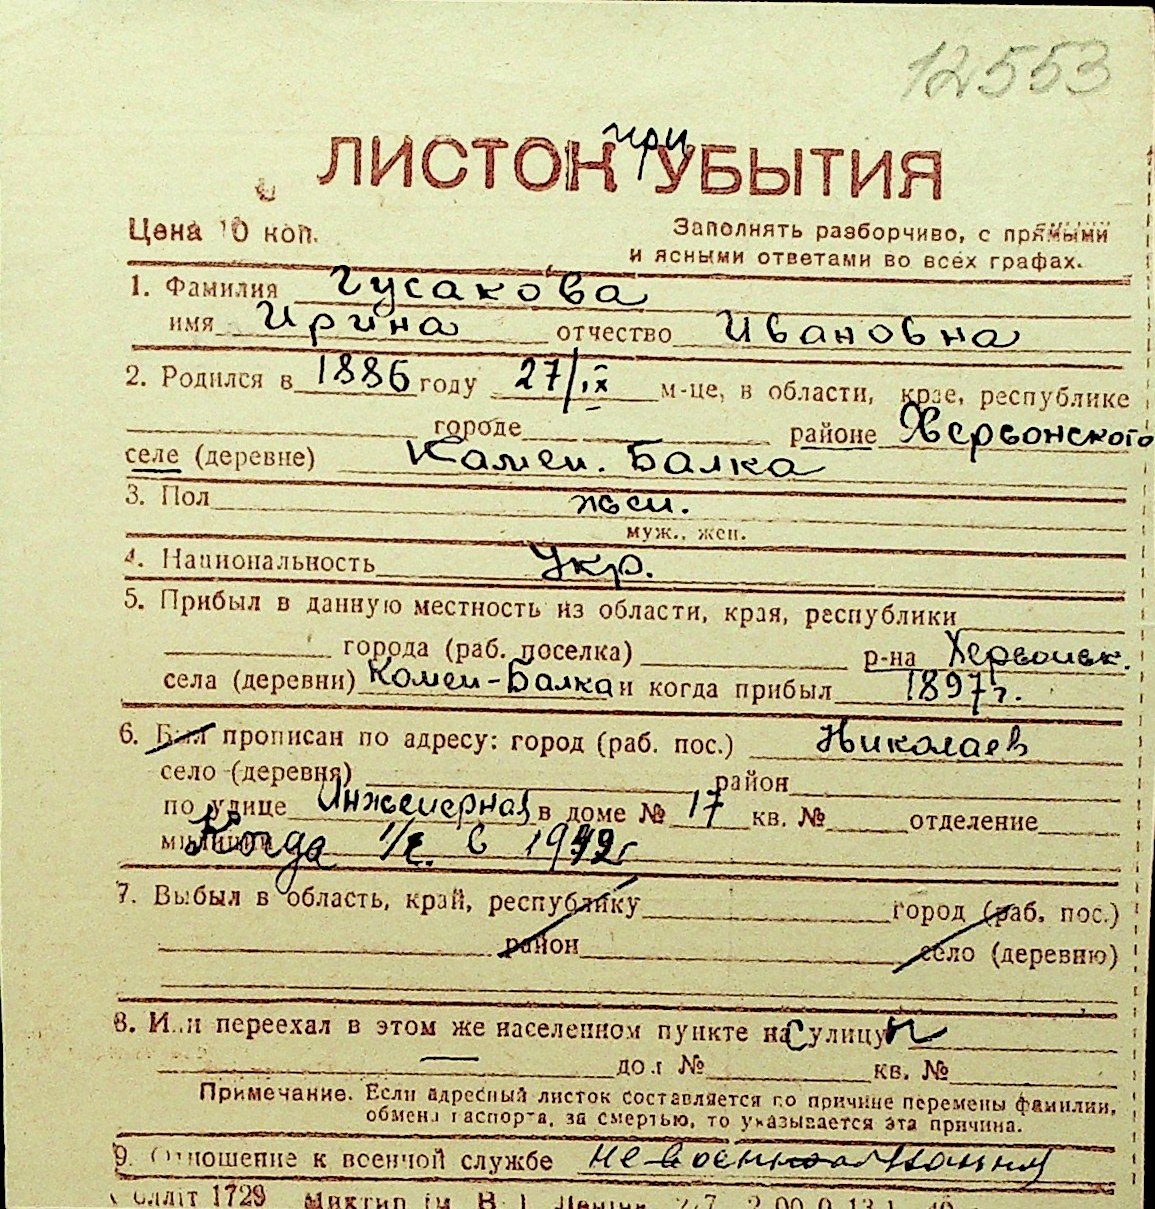 12553
ЛИСТОК при УБЫТИЯ
Цена 10 коп.
Заполнять разборчиво, с прямыми
и ясными ответами во всех графах.
1. Фамилия Гусакова
имя Ирина отчество Ивановна
2. Родился в 1886 году 27/IX м-це, в области, крае, республике
городе районе Херсонского
селе (деревне) Камен. Балка
3. Пол жен.
муж., жен.
4. Национальность Укр.
5. Прибыл в данную местность из области, края, республики
города (раб. поселка) р-на Херсонск.
села (деревни) Камен-Балка и когда прибыл 1897 г.
6. Был прописан по адресу: город (раб. пос.) Николаев
село (деревня) район
по улице Инженерная в доме № 17 кв. № отделение
милиции Когда
7. Выбыл в область, край, республику город (раб. пос.)
район село (деревню)
8. Или переехал в этом же населенном пункте на с улицу
дом № кв. №
Примечание. Если адресный листок составляется по причине перемены фамилии,
обмена паспорта, за смертью, то указывается эта причина.
9. Отношение к военной службе не военнообязанная
1729